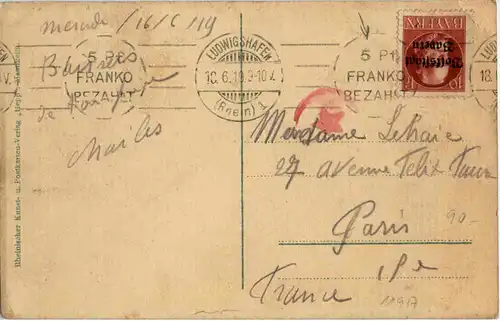 mercredi /16/6/19
Baisers
de
Charles
5 Pf.
FRANKO
BEZAHLT
LUDWIGSHAFEN
10.6.19.9-10.V.
(Rhein) 1
5 Pf.
FRANKO
BEZAHLT
Volksstaat
Bayern
BAYERN
10
Madame Lehaie
27 avenue Felix Faure
Paris
France
90-
119A
Rheinischer Kunst- u. Postkarten-Verlag